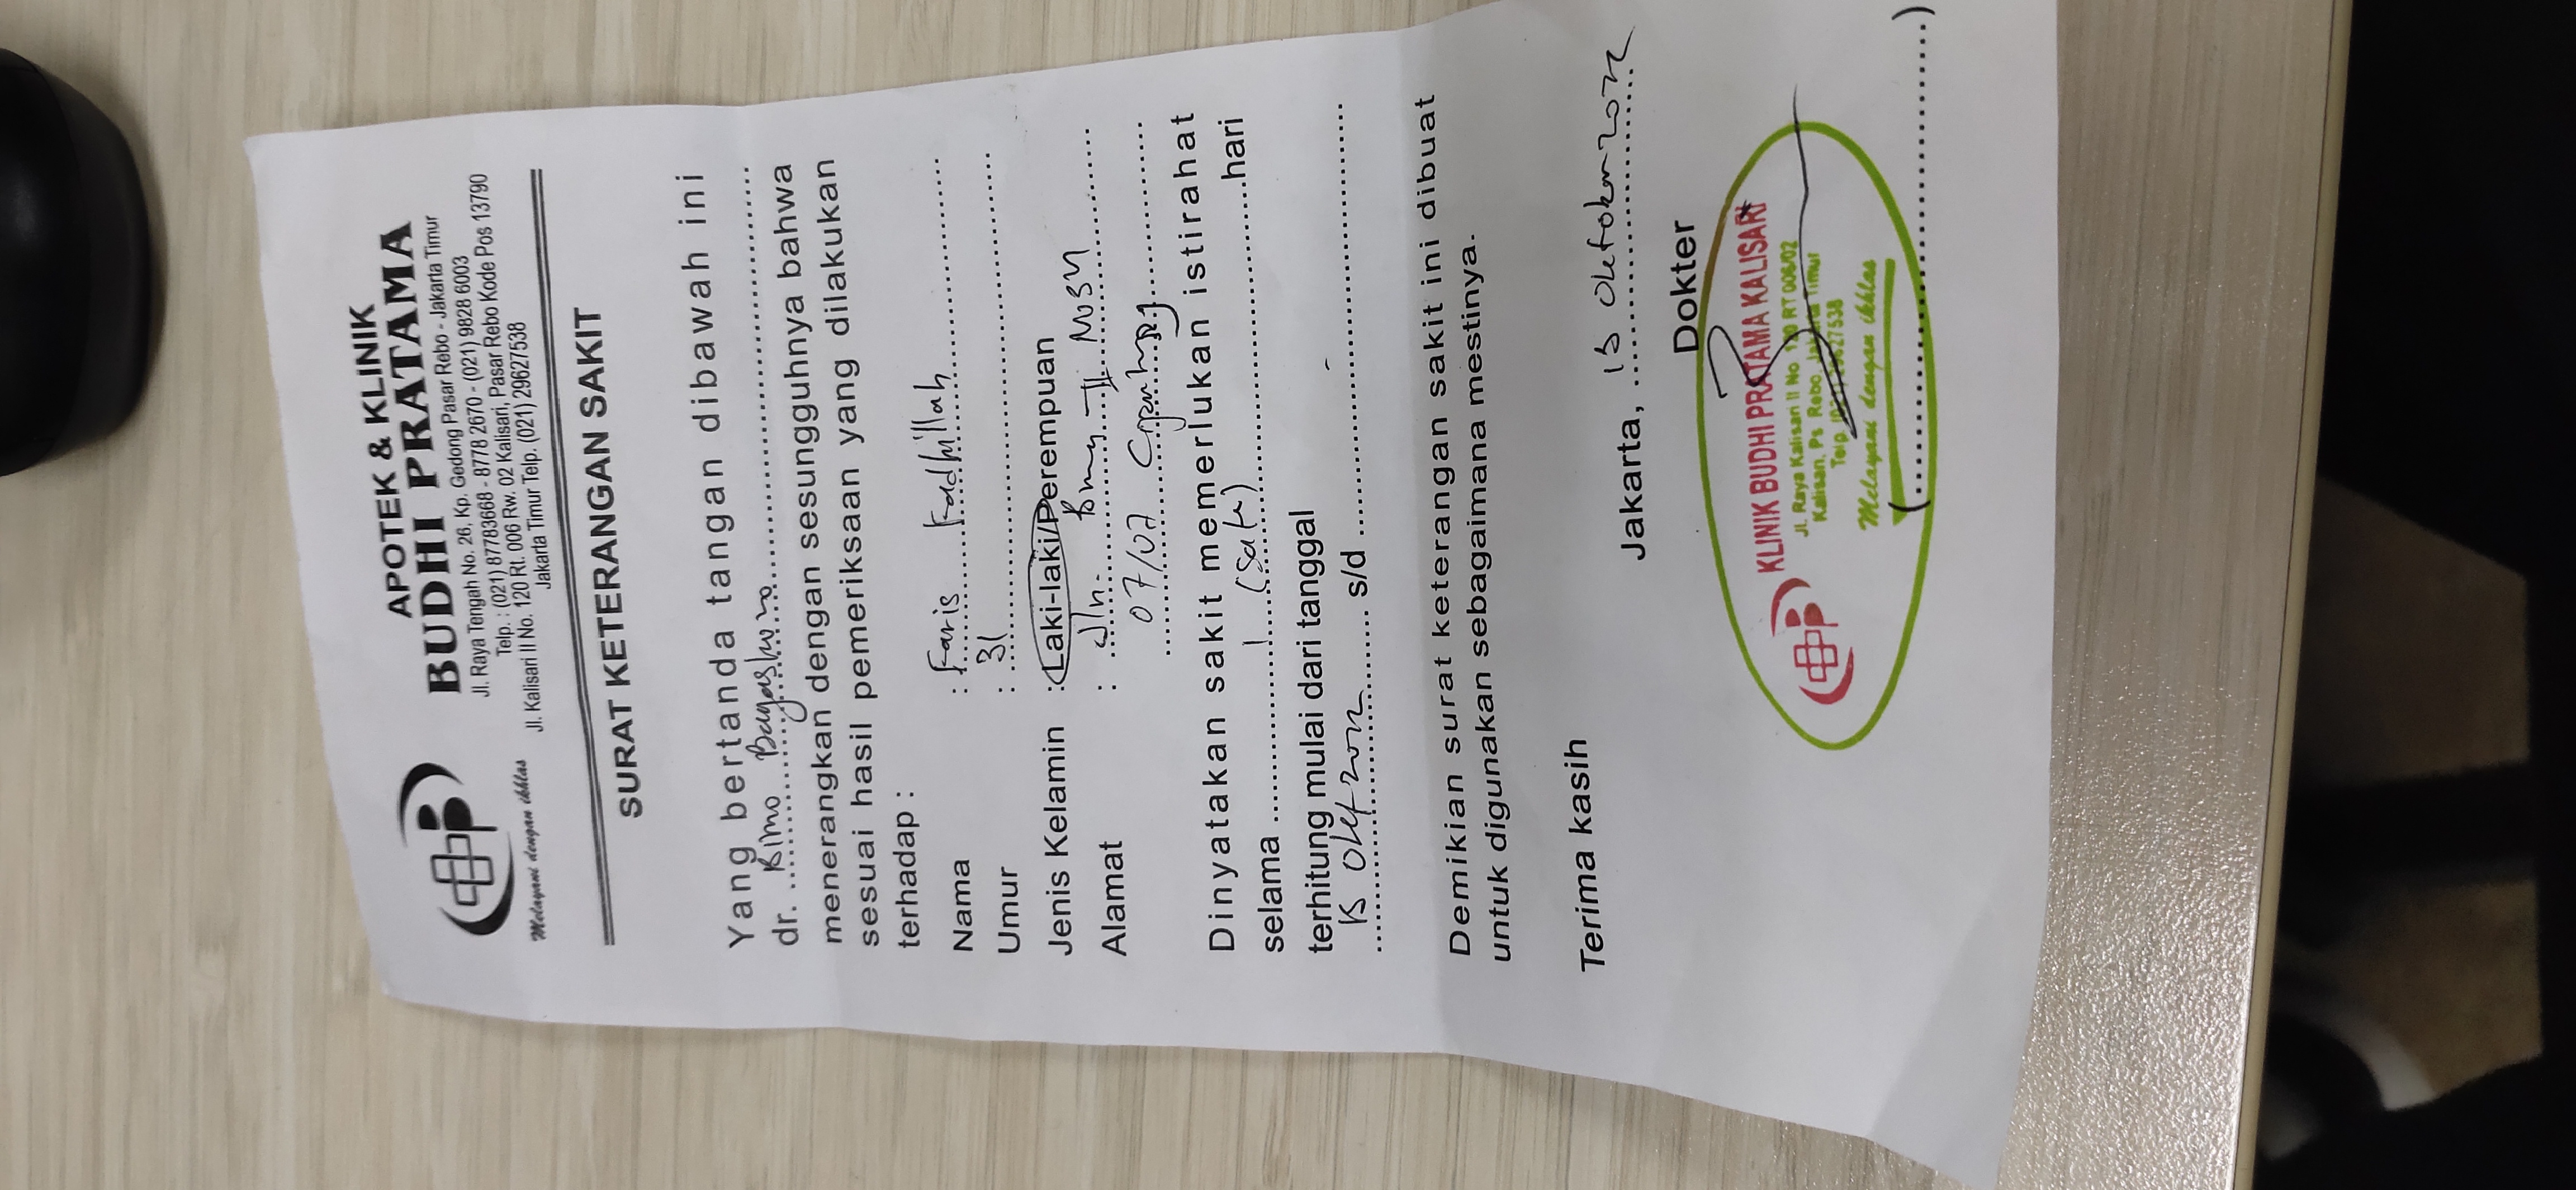 APOTEK & KLINIK
BUDHI PRATAMA
Jl. Raya Tengah No. 26, Kp. Gedong Pasar Rebo - Jakarta Timur
Telp. : (021) 87783668 - 8778 2670 - (021) 9828 6003
Jl. Kalisari II No. 120 Rt. 006 Rw. 02 Kalisari, Pasar Rebo Kode Pos 13790
Jakarta Timur Telp. (021) 29627538
Melayani dengan ikhlas
SURAT KETERANGAN SAKIT
Yang bertanda tangan dibawah ini
dr. Bimo Bagaskoro
menerangkan dengan sesungguhnya bahwa
sesuai hasil pemeriksaan yang dilakukan
terhadap :
Nama : Faris Fadhillah
Umur : 31
Jenis Kelamin : Laki-laki/Perempuan
Alamat : Jln. II
07/07
Dinyatakan sakit memerlukan istirahat
selama 1 (satu) hari
terhitung mulai dari tanggal
15 Okt 2022 s/d -
Demikian surat keterangan sakit ini dibuat
untuk digunakan sebagaimana mestinya.
Terima kasih
Jakarta, 15 Oktober 2022
Dokter
KLINIK BUDHI PRATAMA KALISARI
Jl. Raya Kalisari II No. 120 RT 006/02
Kalisari, Ps Rebo, Jakarta Timur
Telp. (021) 29627538
Melayani dengan ikhlas
(..............................)